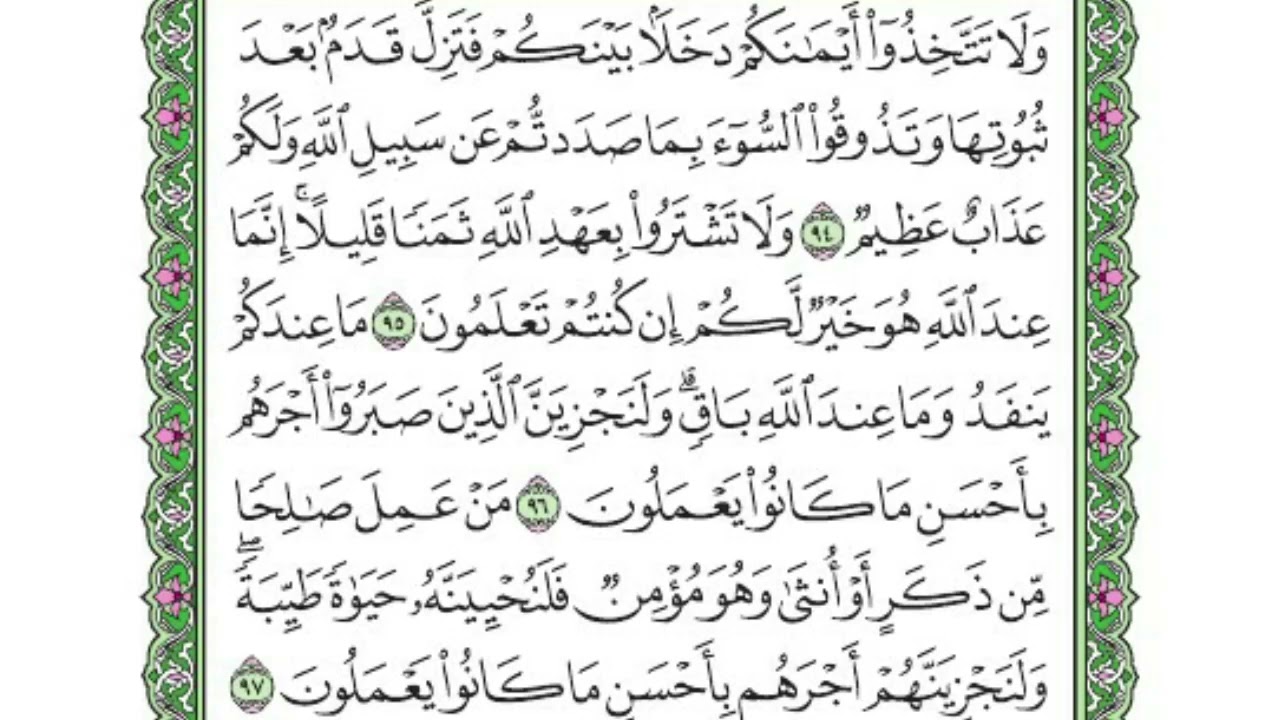 وَلَا تَتَّخِذُوٓا۟ أَيْمَـٰنَكُمْ دَخَلًۢا بَيْنَكُمْ فَتَزِلَّ قَدَمٌۢ بَعْدَ
ثُبُوتِهَا وَتَذُوقُوا۟ ٱلسُّوٓءَ بِمَا صَدَدتُّمْ عَن سَبِيلِ ٱللَّهِ وَلَكُمْ
عَذَابٌ عَظِيمٌ ٩٤ وَلَا تَشْتَرُوا۟ بِعَهْدِ ٱللَّهِ ثَمَنًا قَلِيلًا ۚ إِنَّمَا
عِندَ ٱللَّهِ هُوَ خَيْرٌ لَّكُمْ إِن كُنتُمْ تَعْلَمُونَ ٩٥ مَا عِندَكُمْ
يَنفَدُ وَمَا عِندَ ٱللَّهِ بَاقٍ ۗ وَلَنَجْزِيَنَّ ٱلَّذِينَ صَبَرُوٓا۟ أَجْرَهُم
بِأَحْسَنِ مَا كَانُوا۟ يَعْمَلُونَ ٩٦ مَنْ عَمِلَ صَـٰلِحًا
مِّن ذَكَرٍ أَوْ أُنثَىٰ وَهُوَ مُؤْمِنٌ فَلَنُحْيِيَنَّهُۥ حَيَوٰةً طَيِّبَةً ۖ
وَلَنَجْزِيَنَّهُمْ أَجْرَهُم بِأَحْسَنِ مَا كَانُوا۟ يَعْمَلُونَ ٩٧